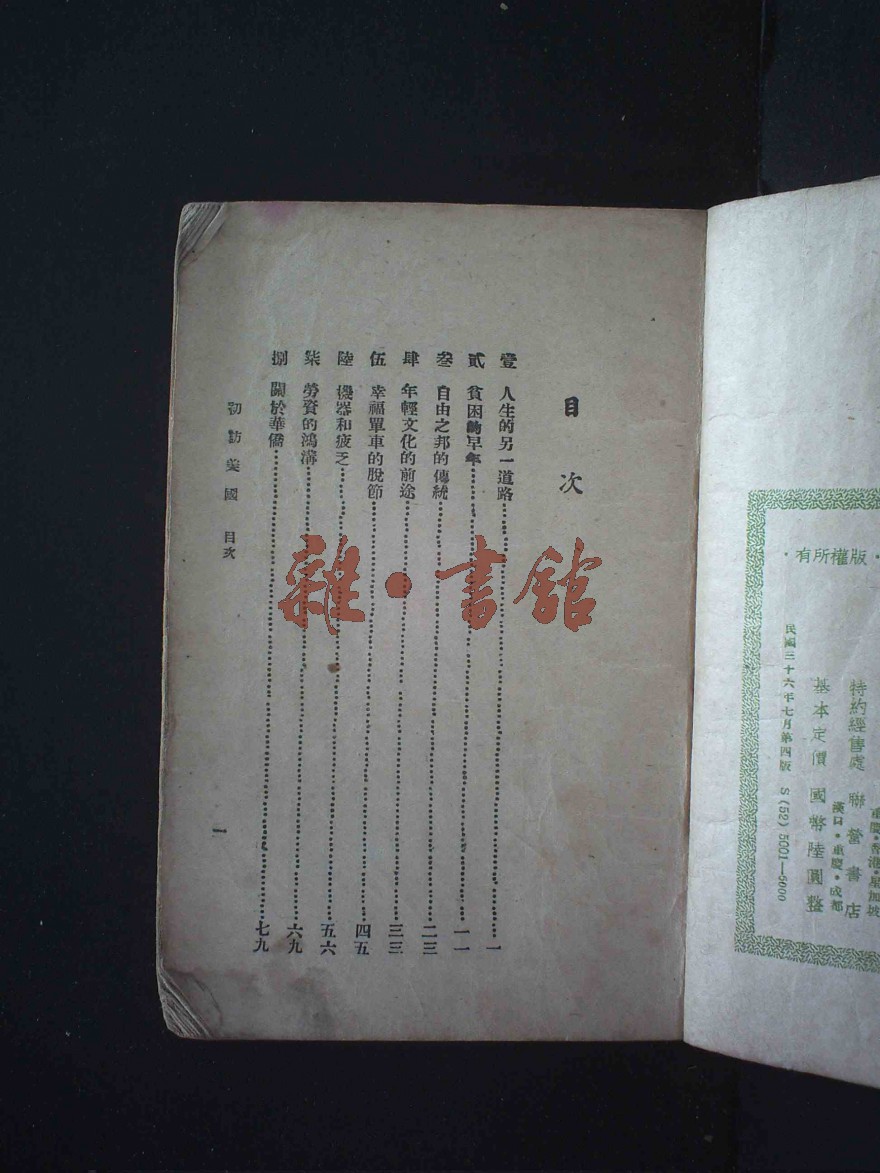 ·有所權版·
重慶·香港·星加坡
特約經售處 聯營書店
漢口·重慶·成都
基本定價 國幣陸圓整
民國三十六年七月第四版 S(52) 5001—5000
目次
壹 人生的另一道路……一
貳 貧困的早年……一一
叁 自由之邦的傳統……二三
肆 年輕文化的前途……三三
伍 幸福單車的脫節……四五
陸 機器和疲乏……五六
柒 勞資的鴻溝……六九
捌 關於華僑……七九
初訪美國 目次
一
雜·書館